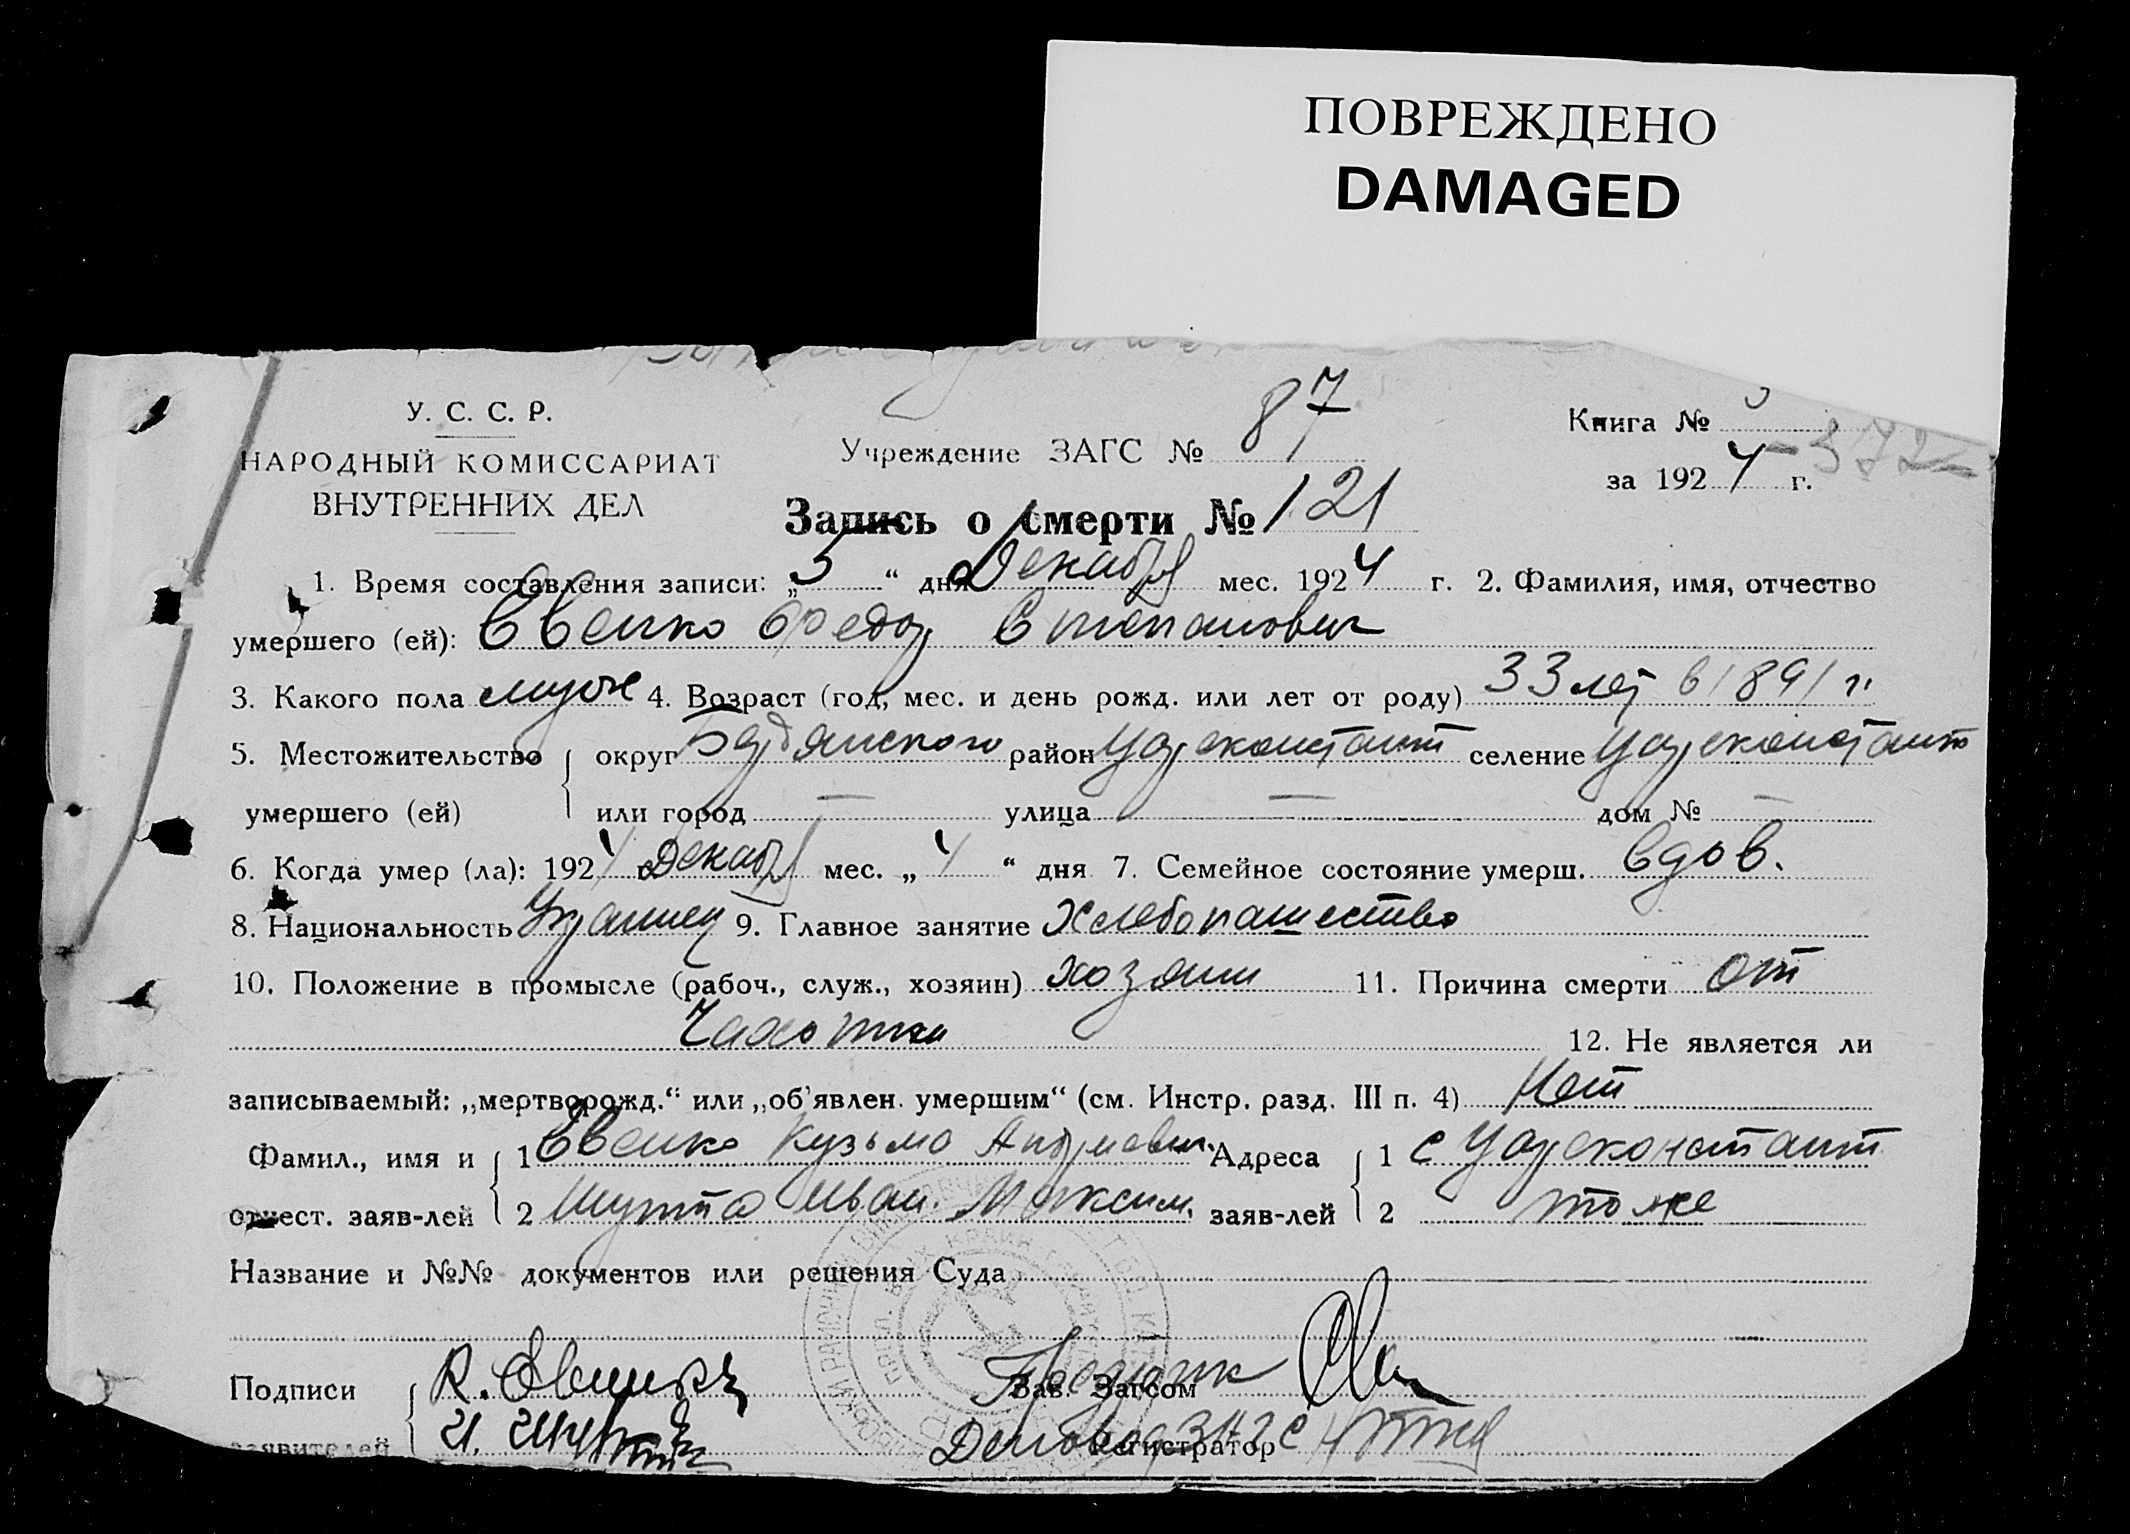 ПОВРЕЖДЕНО
DAMAGED
У. С. С. Р.
НАРОДНЫЙ КОМИССАРИАТ
ВНУТРЕННИХ ДЕЛ
Учреждение ЗАГС № 87
Книга №
за 1924 г. 372
Запись о смерти № 121
1. Время составления записи: „5“ дня Декабря мес. 1924 г. 2. Фамилия, имя, отчество
умершего (ей): Евенко Федор Степанович
3. Какого пола мужс 4. Возраст (год, мес. и день рожд. или лет от роду) 33 лет в 1891 г.
5. Местожительство округ Бердянского район Цареконстант селение Цареконстант
умершего (ей) или город — улица — дом № —
6. Когда умер (ла): 1924 Декабря мес. „4“ дня 7. Семейное состояние умерш. вдов.
8. Национальность Украинец 9. Главное занятие Хлебопашество
10. Положение в промысле (рабоч., служ., хозяин) хозяин 11. Причина смерти от
Чахотки 12. Не является ли
записываемый: „мертворожд.“ или „об'явлен. умершим“ (см. Инстр. разд. III п. 4) Нет
Фамил., имя и 1 Евенко Кузьма Андреевич. Адреса 1 с Цареконстант
отчест. заяв-лей 2 Шутта Иван. Максим. заяв-лей 2 тоже
Название и №№ документов или решения Суда
Подписи К. Зав. Загсом
заявителей И. Регистратор ЗАГС